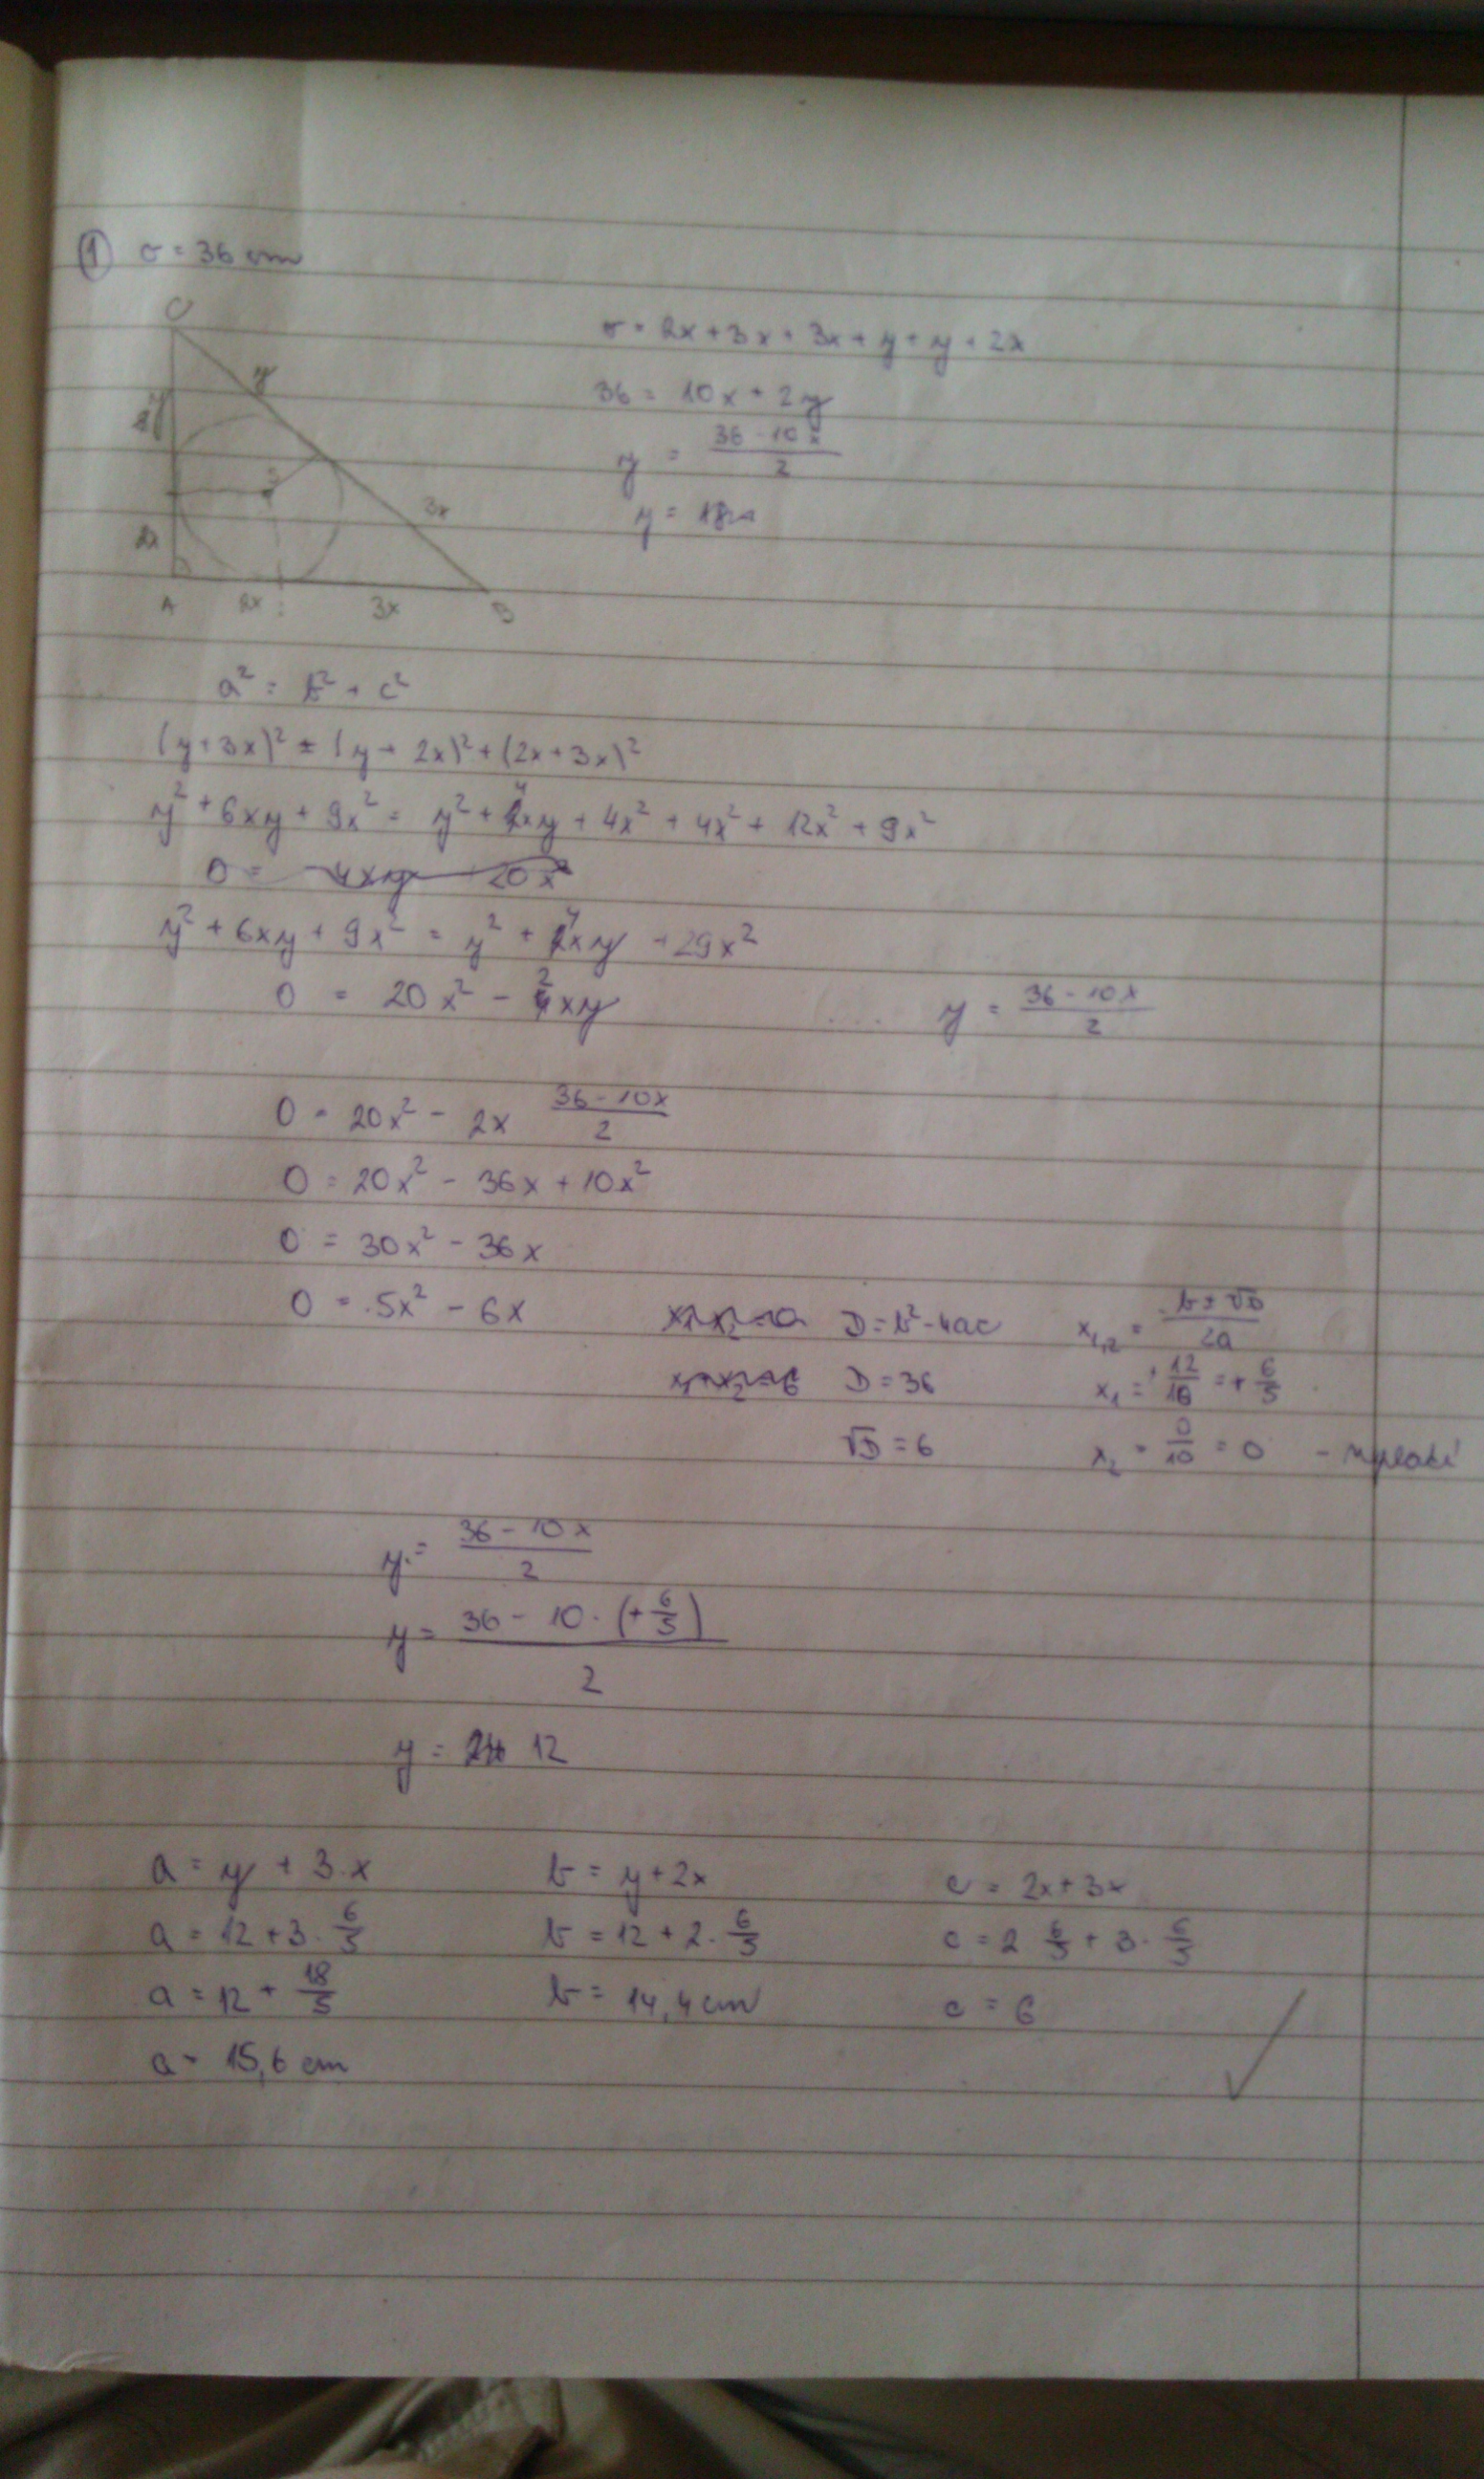 ① σ = 36 cm
C
y
y
S
3x
2x
A 2x 3x B
σ = 2x + 3x + 3x + y + y + 2x
36 = 10x + 2y
y = (36 - 10x)/2
y =
a² = b² + c²
(y + 3x)² = (y + 2x)² + (2x + 3x)²
y² + 6xy + 9x² = y² + 4xy + 4x² + 4x² + 12x² + 9x²
0 = 4xy 20x²
y² + 6xy + 9x² = y² + 4xy + 29x²
0 = 20x² - 2xy .... y = (36 - 10x)/2
0 = 20x² - 2x (36 - 10x)/2
0 = 20x² - 36x + 10x²
0 = 30x² - 36x
0 = 5x² - 6x D = b² - 4ac x₁,₂ = (-b ± √D)/2a
D = 36 x₁ = + 12/10 = + 6/5
√D = 6 x₂ = 0/10 = 0 - neplatí
y = (36 - 10x)/2
y = (36 - 10 · (+ 6/5))/2
y = 12
a = y + 3·x b = y + 2x c = 2x + 3x
a = 12 + 3 · 6/5 b = 12 + 2 · 6/5 c = 2 6/5 + 3 · 6/5
a = 12 + 18/5 b = 14,4 cm c = 6
a = 15,6 cm